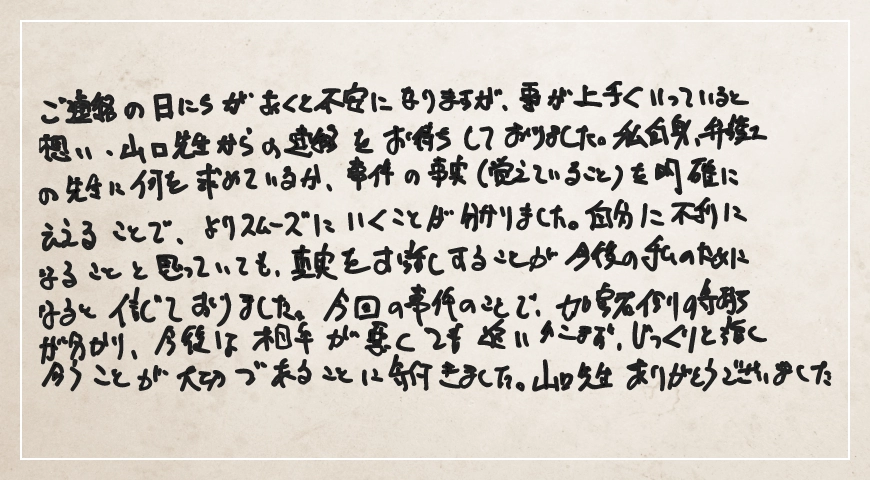 ご連絡の日にちがあくと不安になりますが、事が上手くいっていると
想い、山口先生からの連絡をお待ちしておりました。私自身、弁護士
の先生に何を求めているか、事件の事実(覚えていること)を明確に
伝えることで、よりスムーズにいくことが分かりました。自分に不利に
なることと思っていても、真実をお話しすることが今後の私のために
なると信じておりました。今回の事件のことで、加害者作りの
が分かり、今後は相手が悪くても じっくりと話し
合うことが大切であることに気付きました。山口先生ありがとうございました